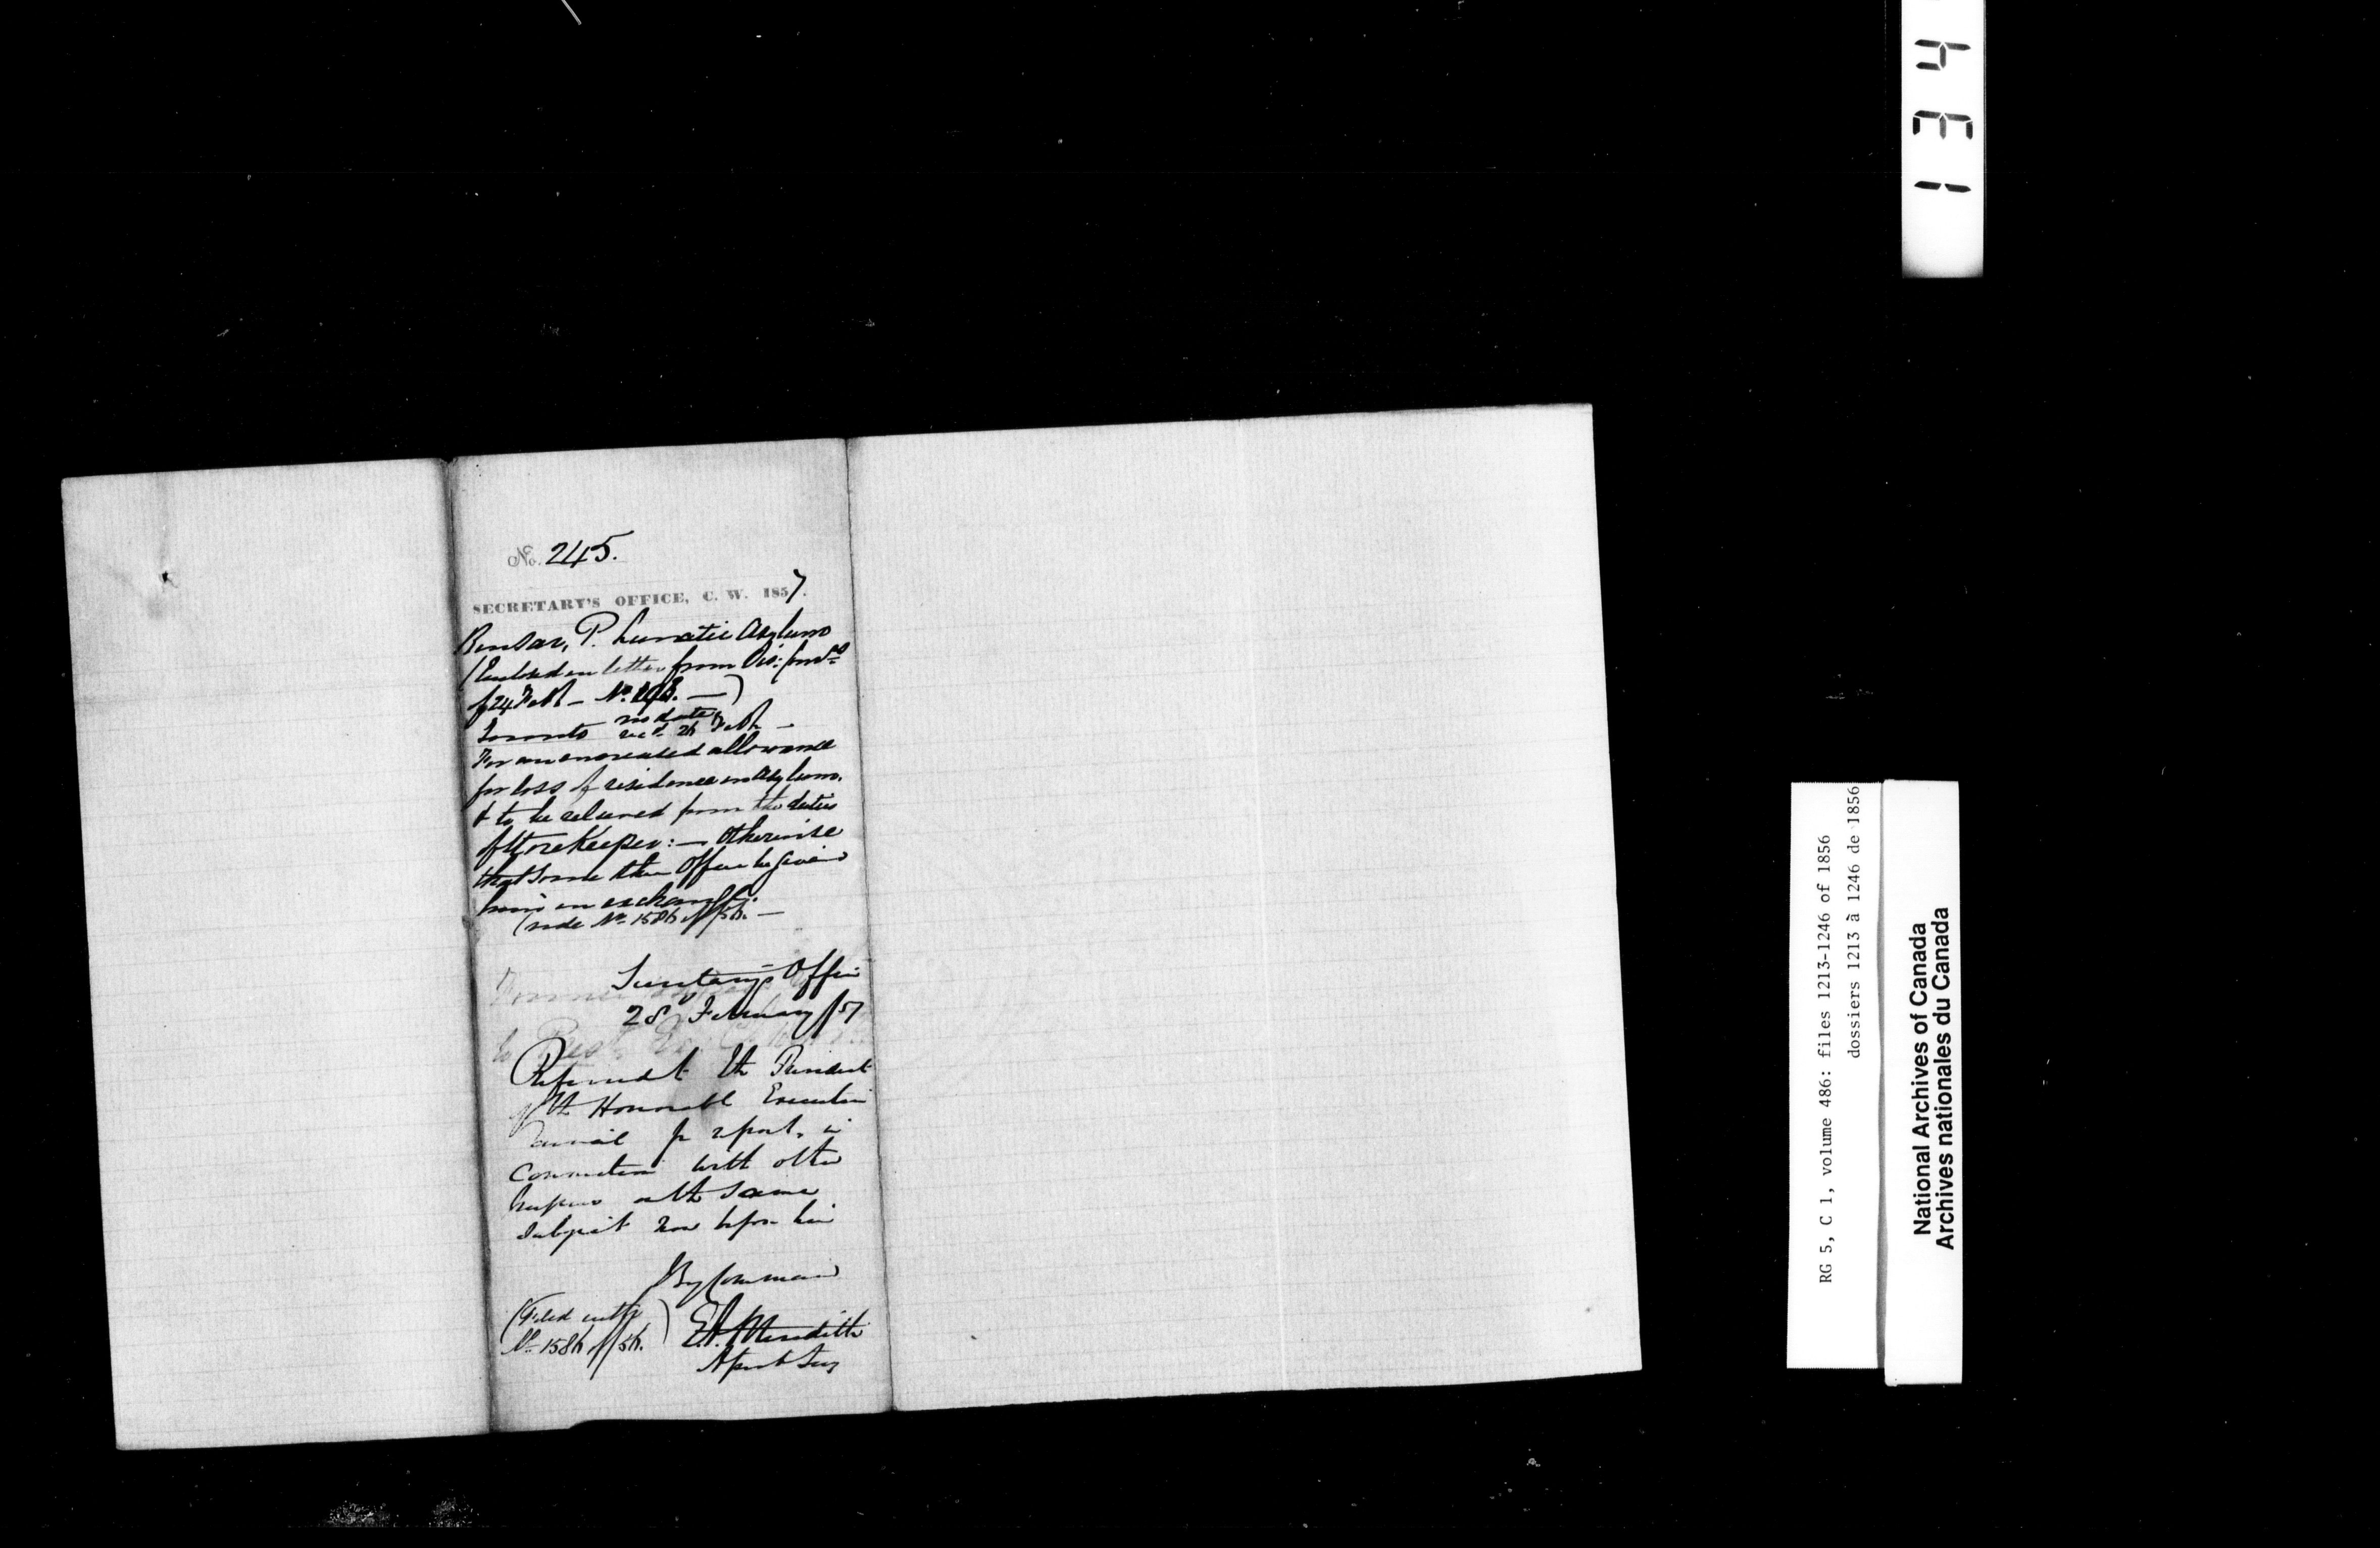 No. 245.
SECRETARY'S OFFICE, C. W. 1857.
P. Lunatic Asylum
(Enclosed in letter from
of 24 Feb - No.
Toronto no date
rec'd 26 Feb -
For an encreased allowance
for loss of residence in Asylum.
& to be relieved from the duties
of Storekeeper: - Otherwise
that some other Office be given
him in exchange.
(vide No 1586 of/56. -
Secretary's Office
28 February /57
Referred to the President
of the Honorable Executive
Council for report, in
connection with other
papers on the same
subject now before him
By Command
(Filed with
No 1586 of/56.)
E.A. Meredith
Assist Secy
134
RG 5, C 1, volume 486: files 1213-1246 of 1856
dossiers 1213 à 1246 de 1856
National Archives of Canada
Archives nationales du Canada